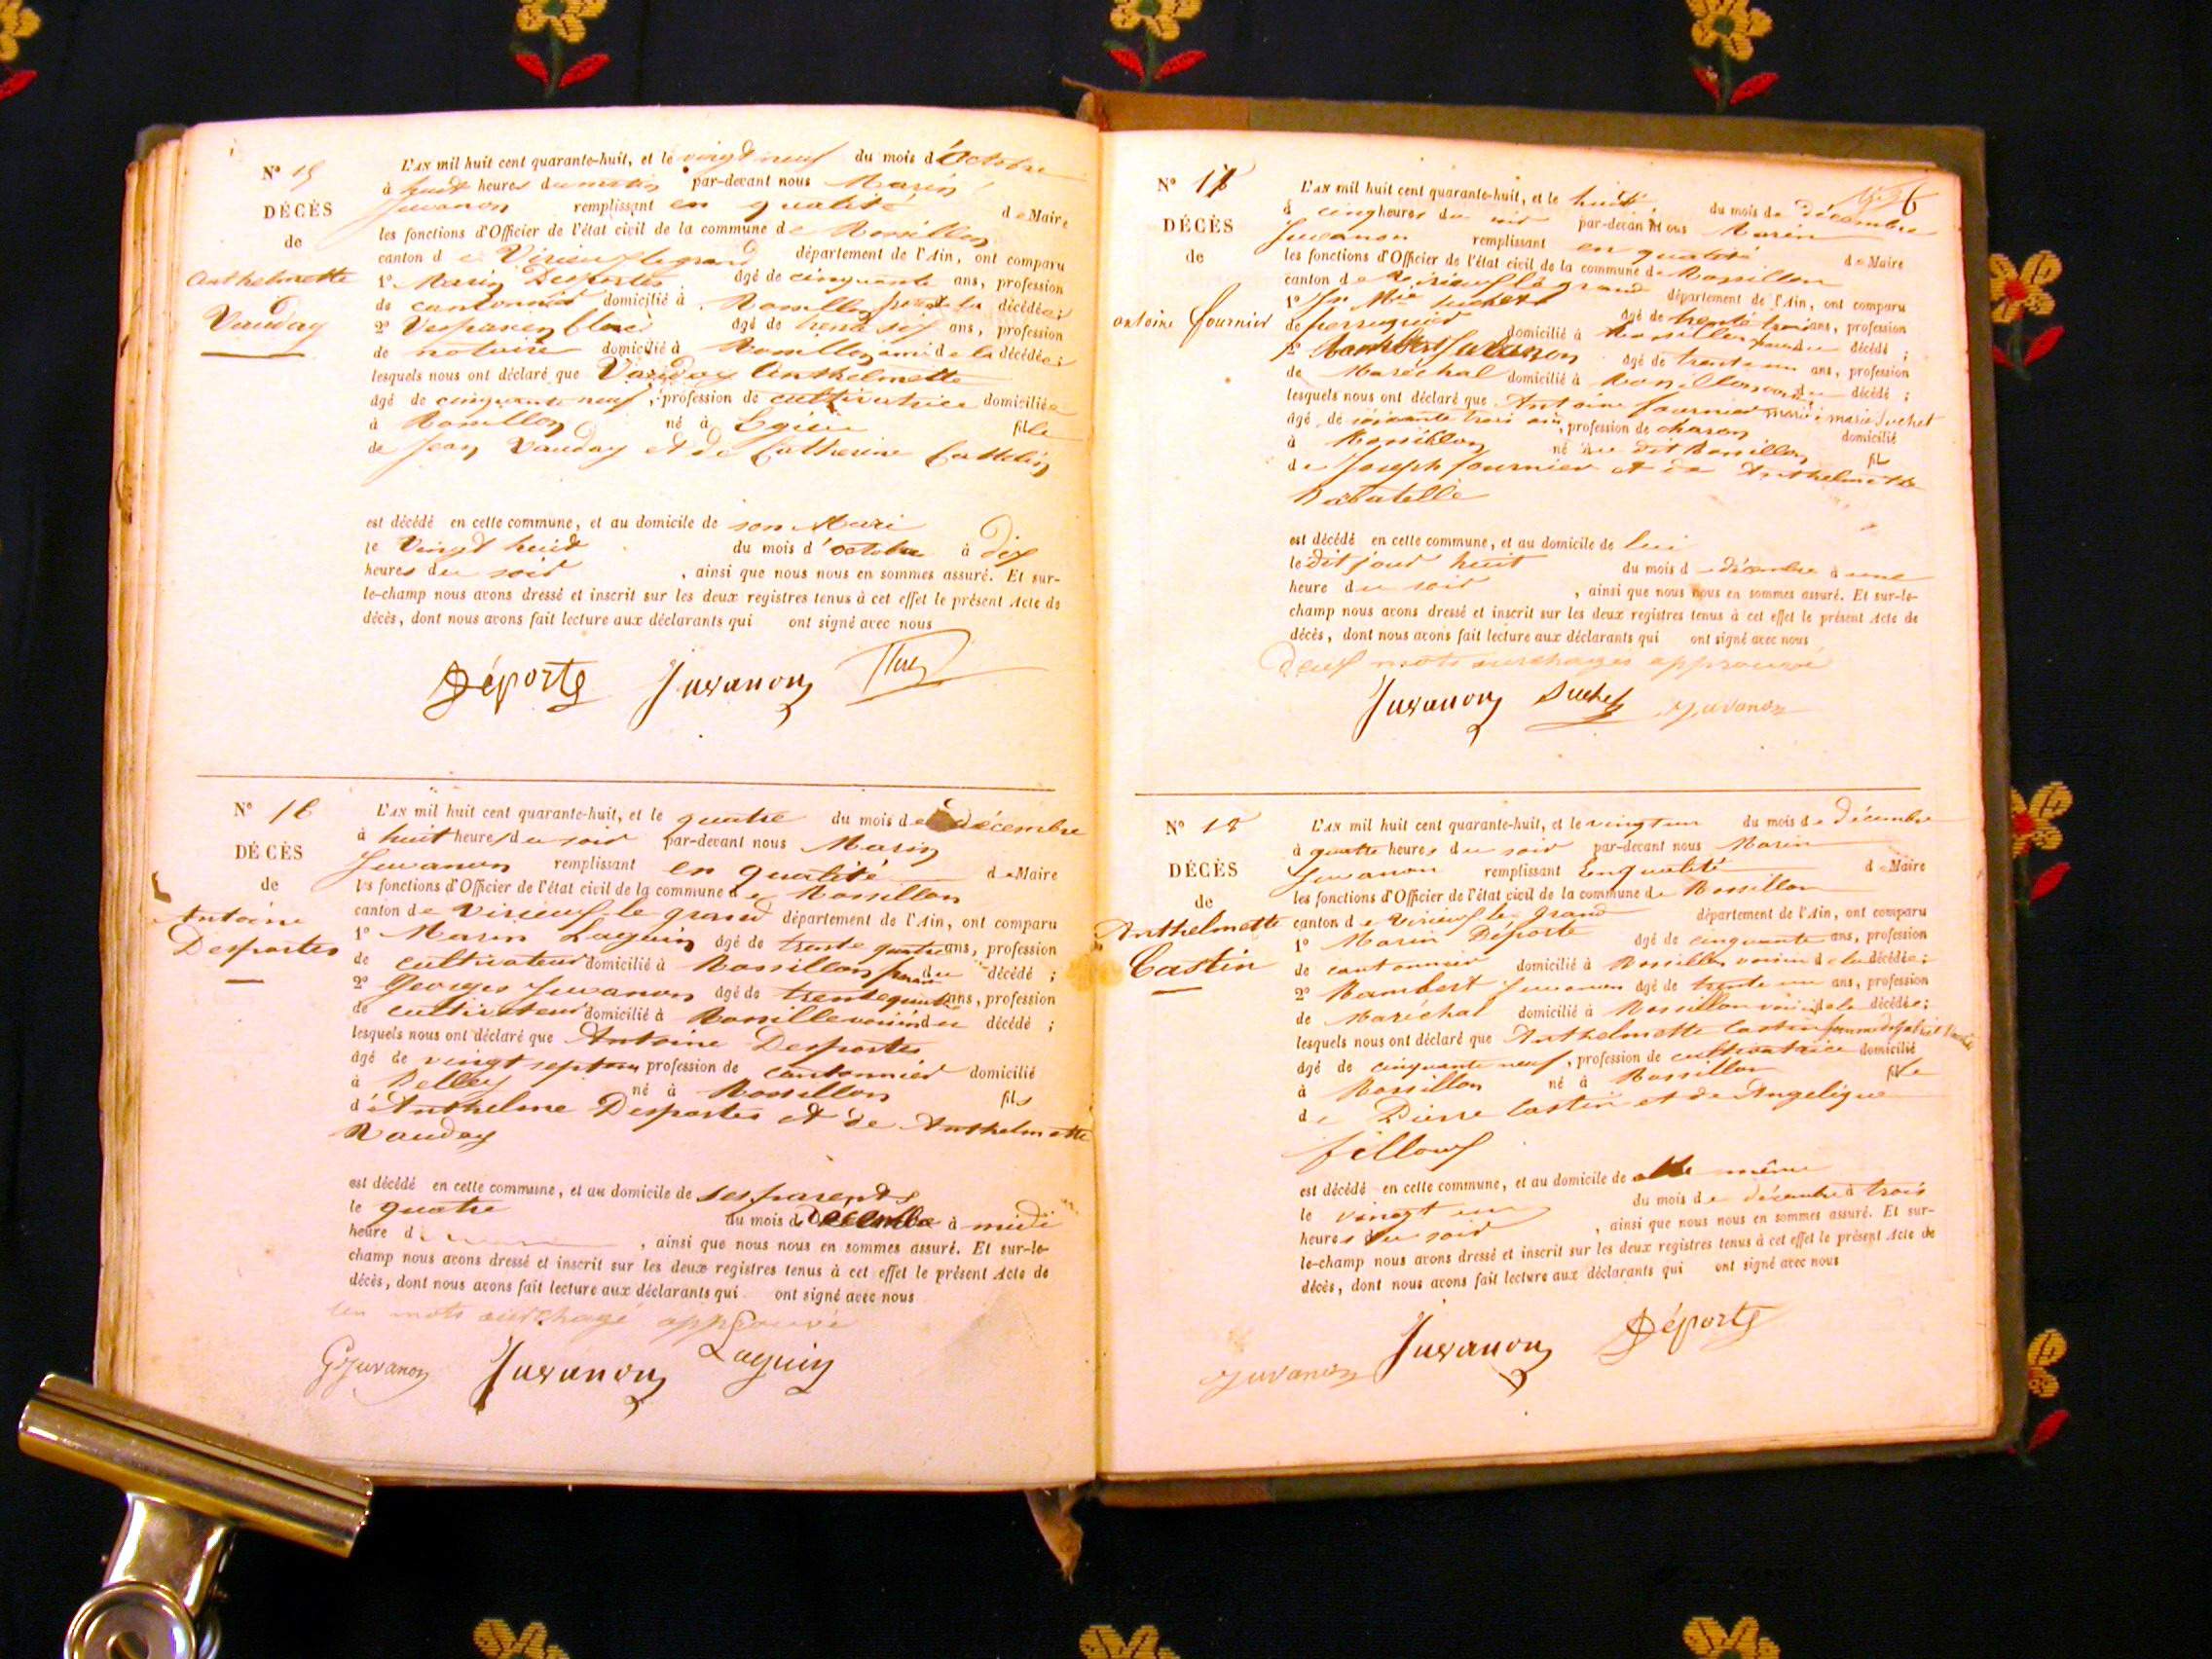 N° 15
DÉCÈS
de
Anthelmette
Vauday
L'AN mil huit cent quarante-huit, et le vingt neuf du mois d'Octobre
à huit heures du matin par-devant nous Marin
Juvanon remplissant en qualité de Maire
les fonctions d'Officier de l'état civil de la commune de Rossillon
canton de Virieu le grand département de l'Ain, ont comparu
1° Marin Desportes âgé de cinquante ans, profession
de cantonnier domicilié à Rossillon de la décédée;
2° Vespasien âgé de trente six ans, profession
de notaire domicilié à Rossillon ami de la décédée;
lesquels nous ont déclaré que Vauday Anthelmette
âgé de cinquante neuf, profession de cultivatrice domiciliée
à Rossillon né à fille
de Jean Vauday et de Catherine
est décédé en cette commune, et au domicile de son Mari
le Vingt huit du mois d'octobre à dix
heures du soir, ainsi que nous nous en sommes assuré. Et sur-
le-champ nous avons dressé et inscrit sur les deux registres tenus à cet effet le présent Acte de
décès, dont nous avons fait lecture aux déclarants qui ont signé avec nous
Déporte Juvanon
N° 16
DÉCÈS
de
Antoine
Desportes
L'AN mil huit cent quarante-huit, et le quatre du mois de décembre
à huit heures du soir par-devant nous Marin
Juvanon remplissant en qualité de Maire
les fonctions d'Officier de l'état civil de la commune de Rossillon
canton de Virieux le grand département de l'Ain, ont comparu
1° Marin Laguin âgé de trente quatre ans, profession
de cultivateur domicilié à Rossillon parent du décédé;
2° Georges Juvanon âgé de trente quatre ans, profession
de cultivateur domicilié à Rossille voisin du décédé;
lesquels nous ont déclaré que Antoine Desportes
âgé de vingt sept ans profession de cantonnier domicilié
à Belley né à Rossillon fils
d'Anthelme Desportes et de Anthelmette
Vauday
est décédé en cette commune, et au domicile de ses parents
le quatre du mois de Décembre à midi
heure d, ainsi que nous nous en sommes assuré. Et sur-le-
champ nous avons dressé et inscrit sur les deux registres tenus à cet effet le présent Acte de
décès, dont nous avons fait lecture aux déclarants qui ont signé avec nous
un mots surchagé approuvé
GJuvanon Juvanon Laguin
6
N° 17
DÉCÈS
de
antoine fournier
L'AN mil huit cent quarante-huit, et le huit du mois de décembre
à cinq heures du soir par-devant nous Marin
Juvanon remplissant en qualité de Maire
les fonctions d'Officier de l'état civil de la commune de Rossillon
canton de Virieux le grand département de l'Ain, ont comparu
1° Jn Mie Suchet âgé de trente trois ans, profession
de perruquier domicilié à Rossillon décédé;
2° Rambert Juvanon âgé de trente un ans, profession
de Maréchal domicilié à Rossillon voisin du décédé;
lesquels nous ont déclaré que Antoine fournier mari à marie Suchet
âgé de soixante trois ans, profession de charon domicilié
à Rossillon né au dit Rossillon fils
de Joseph fournier et de Anthelmette
est décédé en cette commune, et au domicile de lui
le dit jour huit du mois de décembre à une
heure du soir, ainsi que nous nous en sommes assuré. Et sur-le-
champ nous avons dressé et inscrit sur les deux registres tenus à cet effet le présent Acte de
décès, dont nous avons fait lecture aux déclarants qui ont signé avec nous
Deux mots surchages approuvé
Juvanon Suchet Juvanon
N° 18
DÉCÈS
de
Anthelmette
Castin
L'AN mil huit cent quarante-huit, et le vingt un du mois de décembre
à quatre heures du soir par-devant nous Marin
Juvanon remplissant En qualité de Maire
les fonctions d'Officier de l'état civil de la commune de Rossillon
canton de Virieux le grand département de l'Ain, ont comparu
1° Marin Déporte âgé de cinquante ans, profession
de cantonnier domicilié à Rossillon voisin de la décédée;
2° Rambert Juvanon âgé de trente un ans, profession
de Maréchal domicilié à Rossillon voisin de la décédée;
lesquels nous ont déclaré que Anthelmette Castin femme de
âgé de cinquante neuf, profession de cultivatrice domicilié
à Rossillon né à Rossillon fille
de Pierre Castin et de Angelique
fillouf
est décédé en cette commune, et au domicile de elle même
le vingt un du mois de décembre à trois
heures du soir, ainsi que nous nous en sommes assuré. Et sur-
le-champ nous avons dressé et inscrit sur les deux registres tenus à cet effet le présent Acte de
décès, dont nous avons fait lecture aux déclarants qui ont signé avec nous
Juvanon Juvanon Déporte